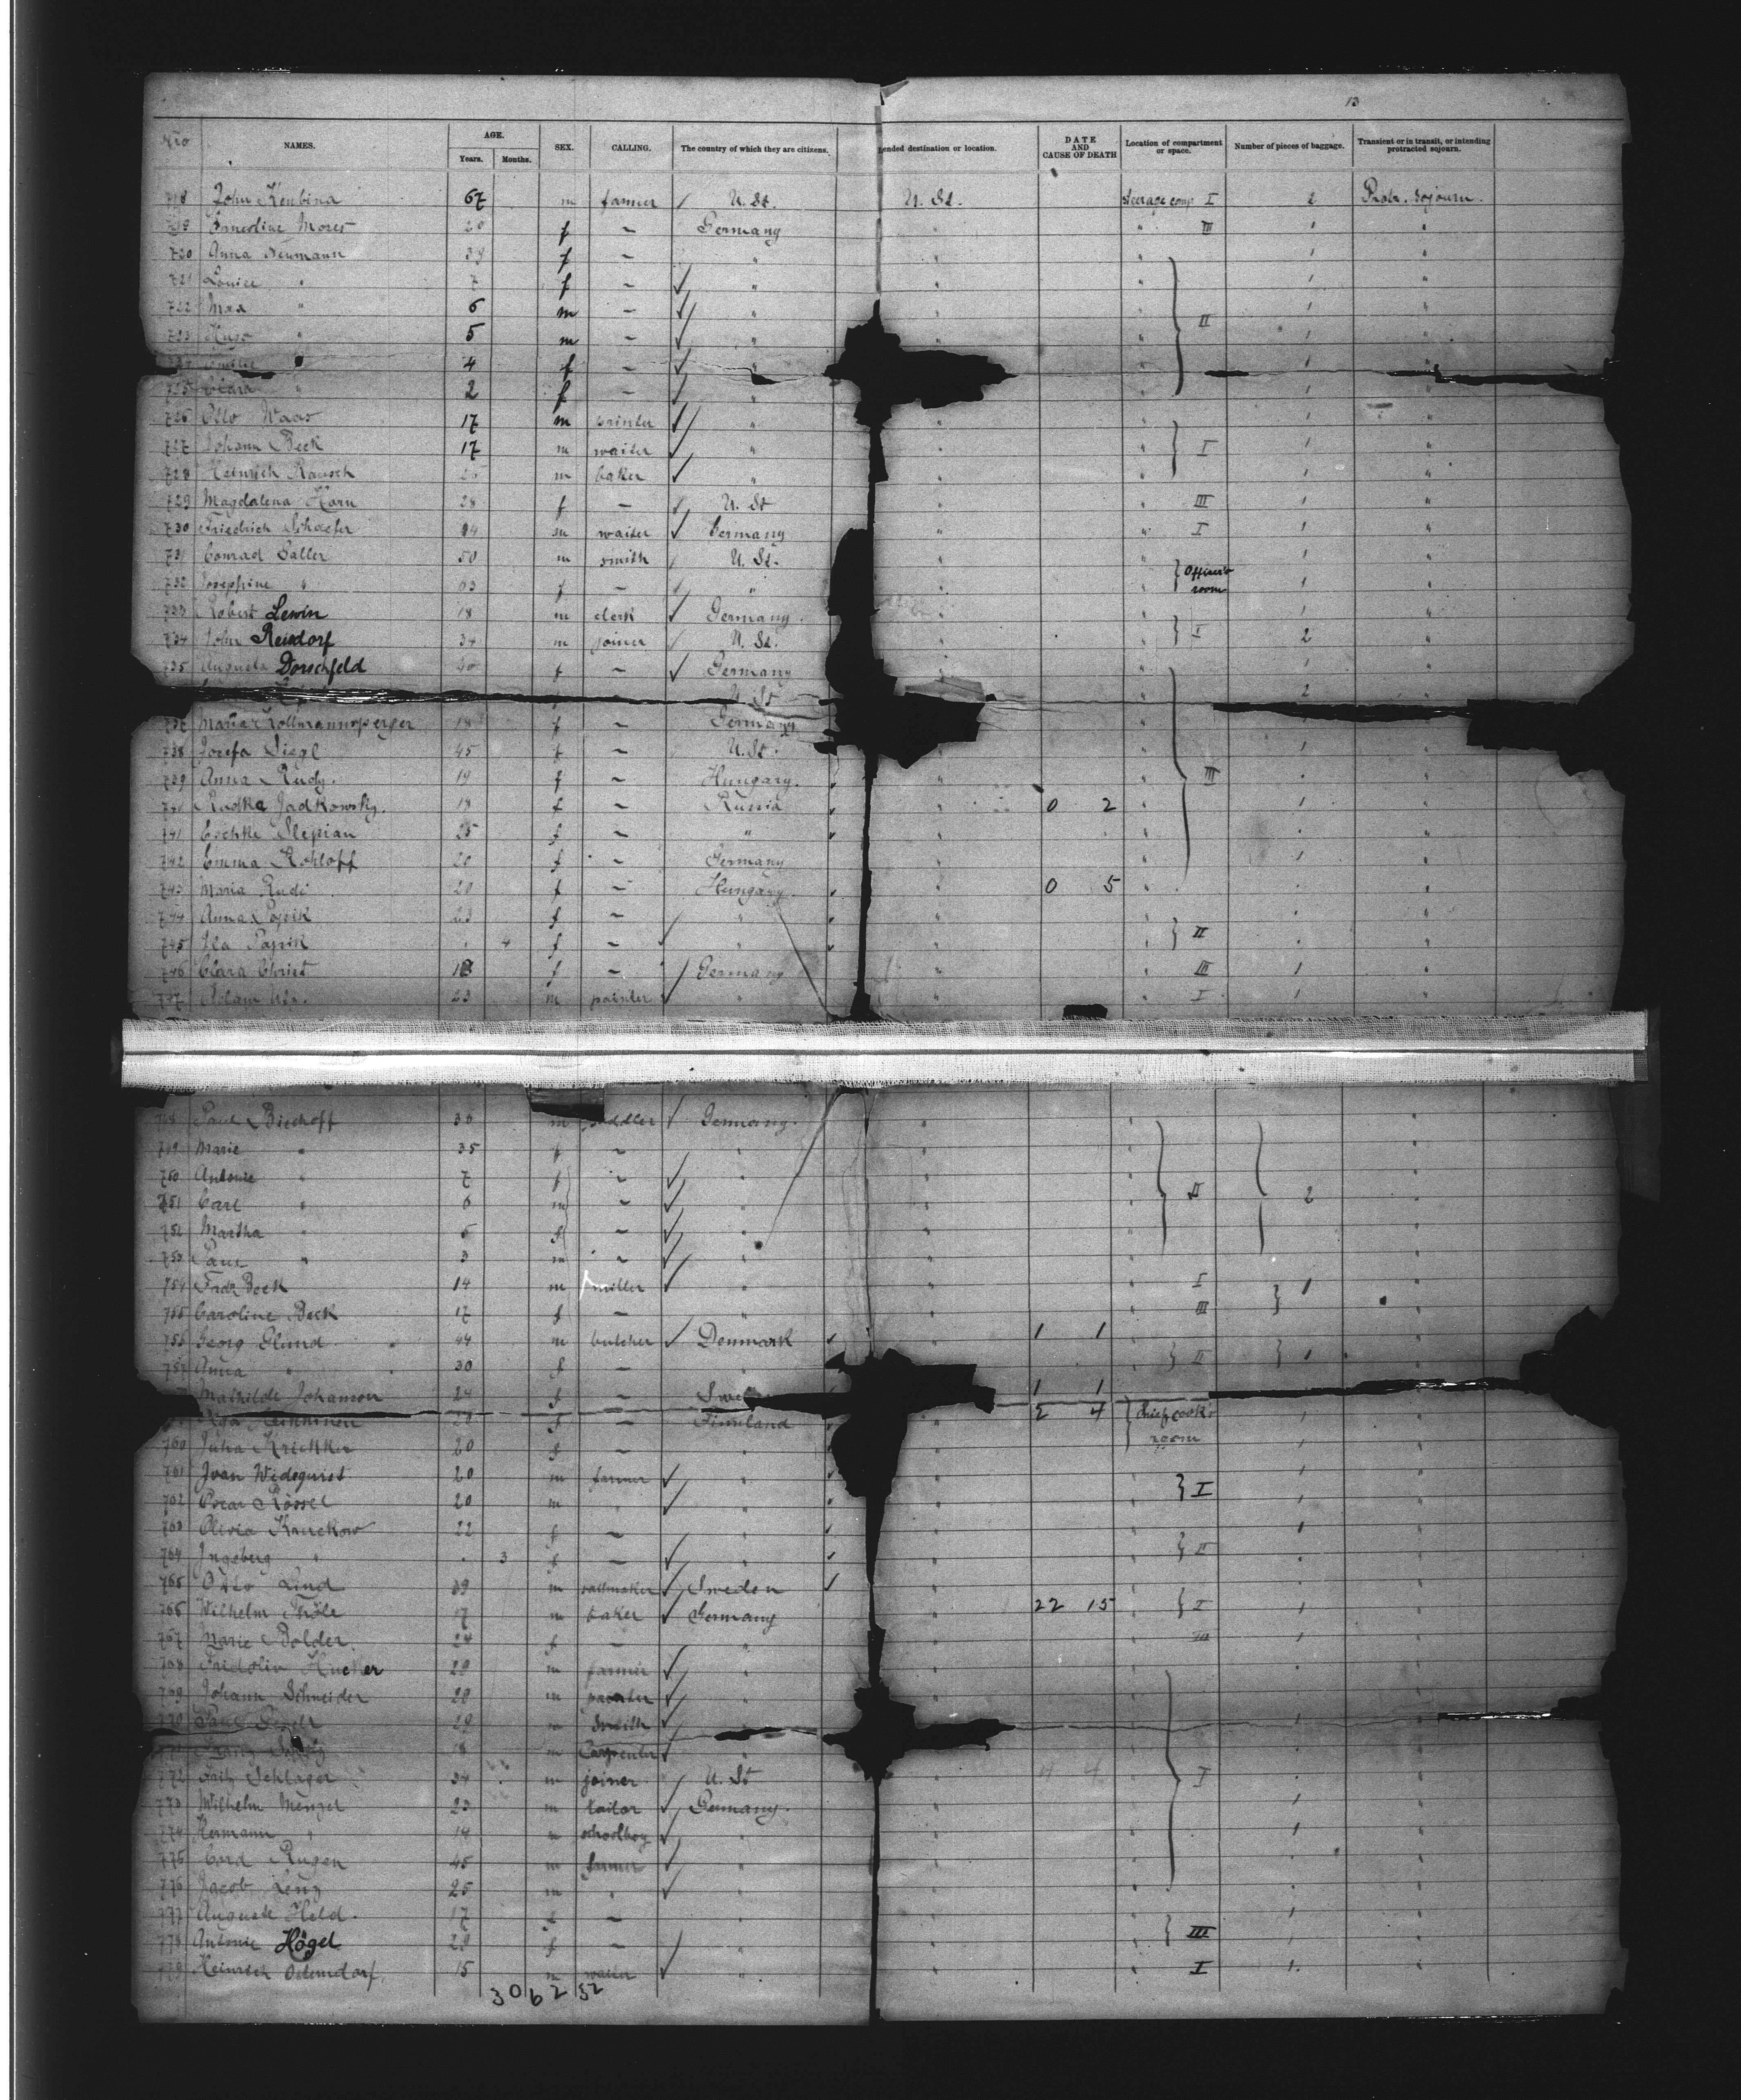 13
No NAMES. AGE. Years. Months. SEX. CALLING. The country of which they are citizens. ended destination or location. DATE AND CAUSE OF DEATH Location of compartment or space. Number of pieces of baggage. Transient or in transit, or intending protracted sojourn.
718 John 67 m farmer U. St. U. St. steerage comp I 2 Protr. sojourn.
719 Ernestine Mores 20 f — Germany " " III 1 "
720 Anna Neumann 39 f — " " " 1 "
721 Louise " 7 f — " " " 1 "
722 Max " 6 m — " " " II 1 "
723 Hugo " 5 m — " " 1 "
" 4 f — " " 1 "
725 Clara " 2 f — " " 1 "
726 Otto Waas 17 m printer " " " 1 "
727 Johann Beck 17 m waiter " " " I 1 "
728 Heinrich Rausch m baker " " " 1 "
729 Magdalena Horn 28 f — U. St " " III 1 "
730 Friedrich Schaefer m waiter Germany " " I 1 "
731 Conrad Saller 50 m smith U. St. " " Officer's room 1 "
732 Josephine " 63 f — " " " 1 "
733 Robert Lewin 18 m clerk Germany. " " I 1 "
734 John Reisdorf 34 m joiner U. St. " " 2 "
735 Augusta Dorschfeld 40 f — Germany " " 1 "
U. St " 2
737 Maria Kollmannsperger 18 f — Germany "
738 Josefa Siegl 45 f — U. St. " " 1 "
739 Anna Rudy. 19 f — Hungary. " " III "
740 Rudka Jadkowsky. 18 f — Russia " 0 2 " 1 "
741 Slepian 25 f — " " " "
742 Emma Rohloff 20 f — Germany " " 1 "
743 Maria Rudi 20 f — Hungary. " 0 5 " "
744 Anna Papik 23 f — " " " II "
745 Ila Papik 4 f — " " " "
746 Clara Christ 18 f — Germany " " III 1 "
747 Adam 23 m painter " " " I 1 "
748 Paul Bischoff 36 m saddler Germany. " " "
749 Marie " 35 f — " " " "
750 Antonie " 7 f — " " " "
751 Carl " 6 m — " " " II 2 "
752 Martha " 5 f — " " " "
753 Paul " 3 m — " " " "
754 Fritz Beck 14 m miller " " " I 1 "
755 Caroline Beck 17 f — " " " III "
756 Georg Glund 44 m butcher Denmark " 1 1 " II 1 "
757 Anna " 30 f — " " " "
Mathilde Johanson 24 f — 1 1
f — Finnland " 2 4 Chief cook's room 1 "
760 Juha 20 f — " " 1 "
761 Ivan Widequist 20 m farmer " " " I 1 "
762 Oscar Rössel 20 m " " " " 1 "
763 Olivia Kruckow 22 f — " " " II 1 "
764 Ingeberg " 3 f — " " " "
765 Otto Lind 39 m sailmaker Sweden " " "
766 Wilhelm Thöle 17 m baker Germany " 22 15 " I 1 "
767 Marie Bolder. 24 f — " " " III 1 "
768 Fridolin Hucker 29 m farmer " " " "
769 Johann Schneider 28 m painter " " " "
770 Paul 29 m smith " 1 "
18 m Carpenter " "
772 Fritz Schlager 34 m joiner U. St 4 4 I "
773 Wilhelm Menzel 23 m tailor Germany. " " 1 "
774 Hermann " 14 m schoolboy " " " 1 "
775 Cord Rugen 45 m farmer " " " "
776 Jacob Lenz 25 m " " " "
777 Auguste Held. 17 f — " " " III 1 "
778 Antonie Högel 29 f — " " " 1 "
779 Heinrich Ostendorf 15 m waiter " " " I 1. "
30 62 52